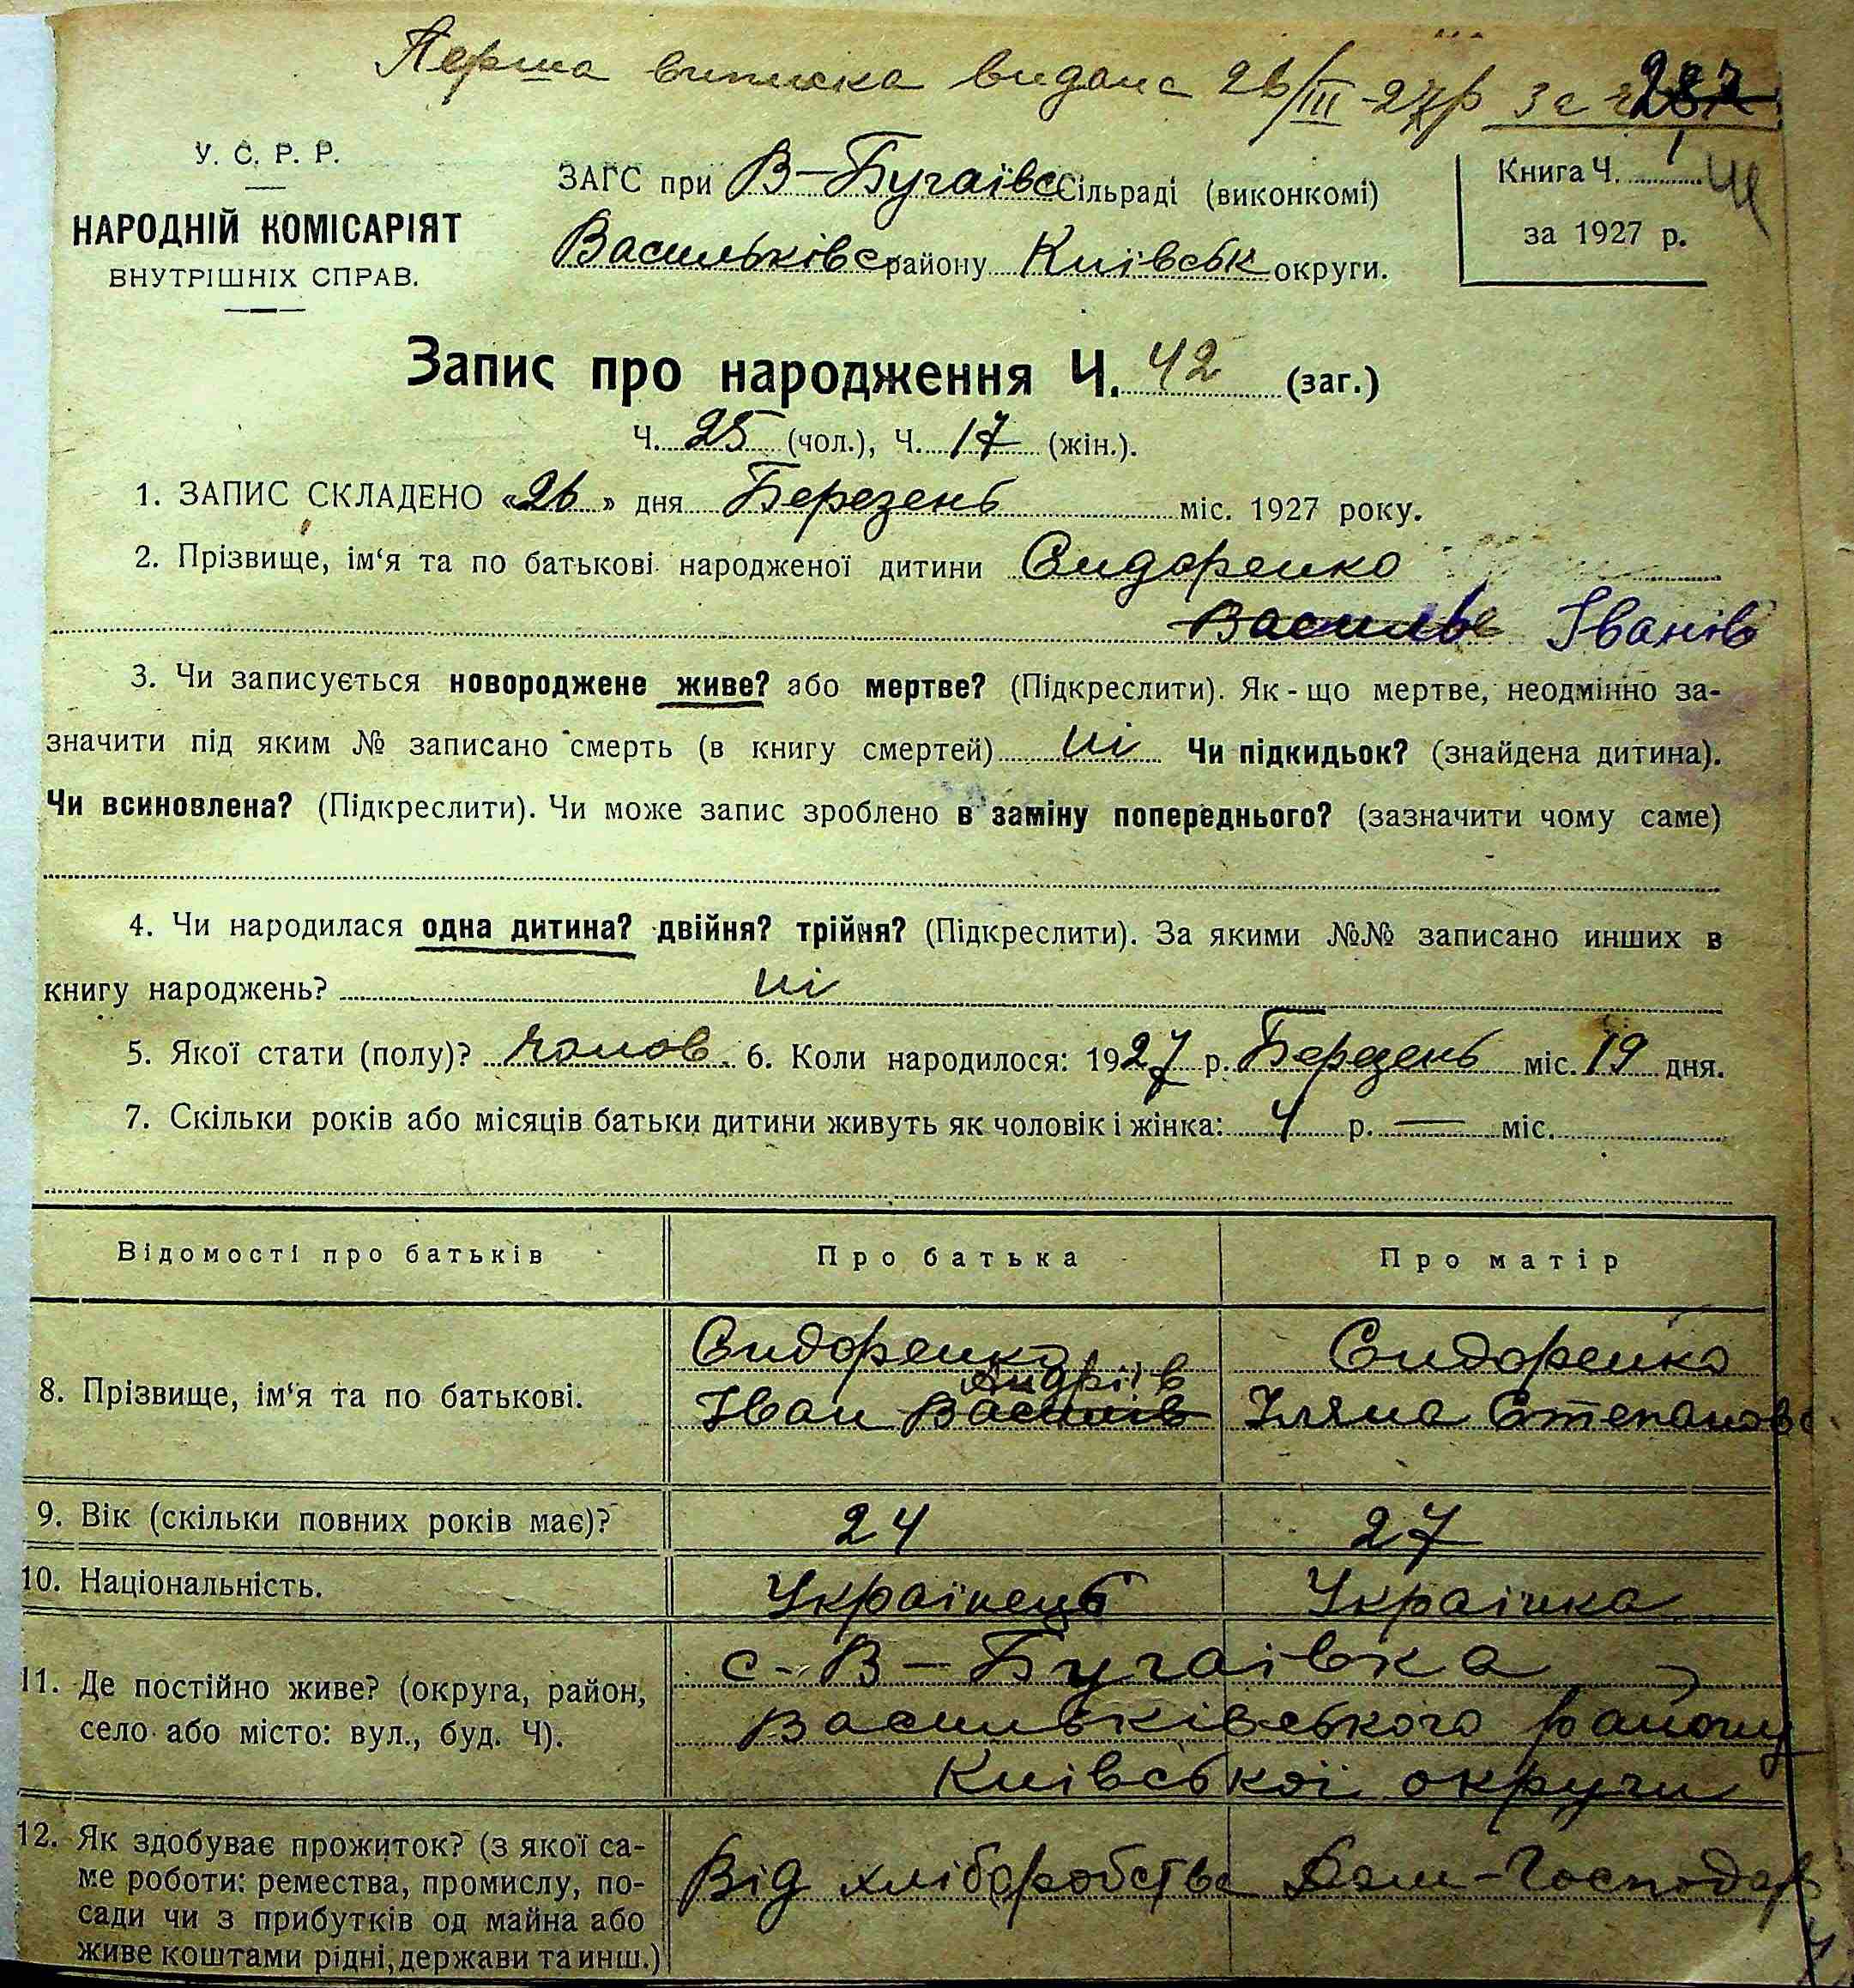 Перша виписка видана 26/III-27р за ч 287
У. С. Р. Р.
НАРОДНІЙ КОМІСАРІЯТ
ВНУТРІШНІХ СПРАВ.
ЗАГС при В-Бугаївс Сільраді (виконкомі)
Васильківс району Київськ округи.
Книга Ч. 1
за 1927 р.
Запис про народження Ч. 42 (заг.)
Ч. 25 (чол.), Ч. 17 (жін.).
1. ЗАПИС СКЛАДЕНО «26» дня Березень міс. 1927 року.
2. Прізвище, ім‘я та по батькові народженої дитини Сидоренко
Василь Іванів
3. Чи записується новороджене живе? або мертве? (Підкреслити). Як-що мертве, неодмінно за-
значити під яким № записано смерть (в книгу смертей) ні Чи підкидьок? (знайдена дитина).
Чи всиновлена? (Підкреслити). Чи може запис зроблено в заміну попереднього? (зазначити чому саме)
4. Чи народилася одна дитина? двійня? трійня? (Підкреслити). За якими №№ записано инших в
книгу народжень? ні
5. Якої стати (полу)? чолов. 6. Коли народилося: 1927 р. Березень міс. 19 дня.
7. Скільки років або місяців батьки дитини живуть як чоловік і жінка: 4 р. — міс.
Відомості про батьків Про батька Про матір
Сидоренко Сидоренко
Андріїв
8. Прізвище, ім‘я та по батькові. Іван Василів Уляна Степанова
9. Вік (скільки повних років має)? 24 27
10. Національність. Українець Українка
с-В-Бугаівка
11. Де постійно живе? (округа, район,
село або місто: вул., буд. Ч). Васильківського району
Київської округи
12. Як здобуває прожиток? (з якої са-
ме роботи: ремества, промислу, по-
сади чи з прибутків од майна або
живе коштами рідні, держави та инш.)
Від хліборобства Дом-Господар